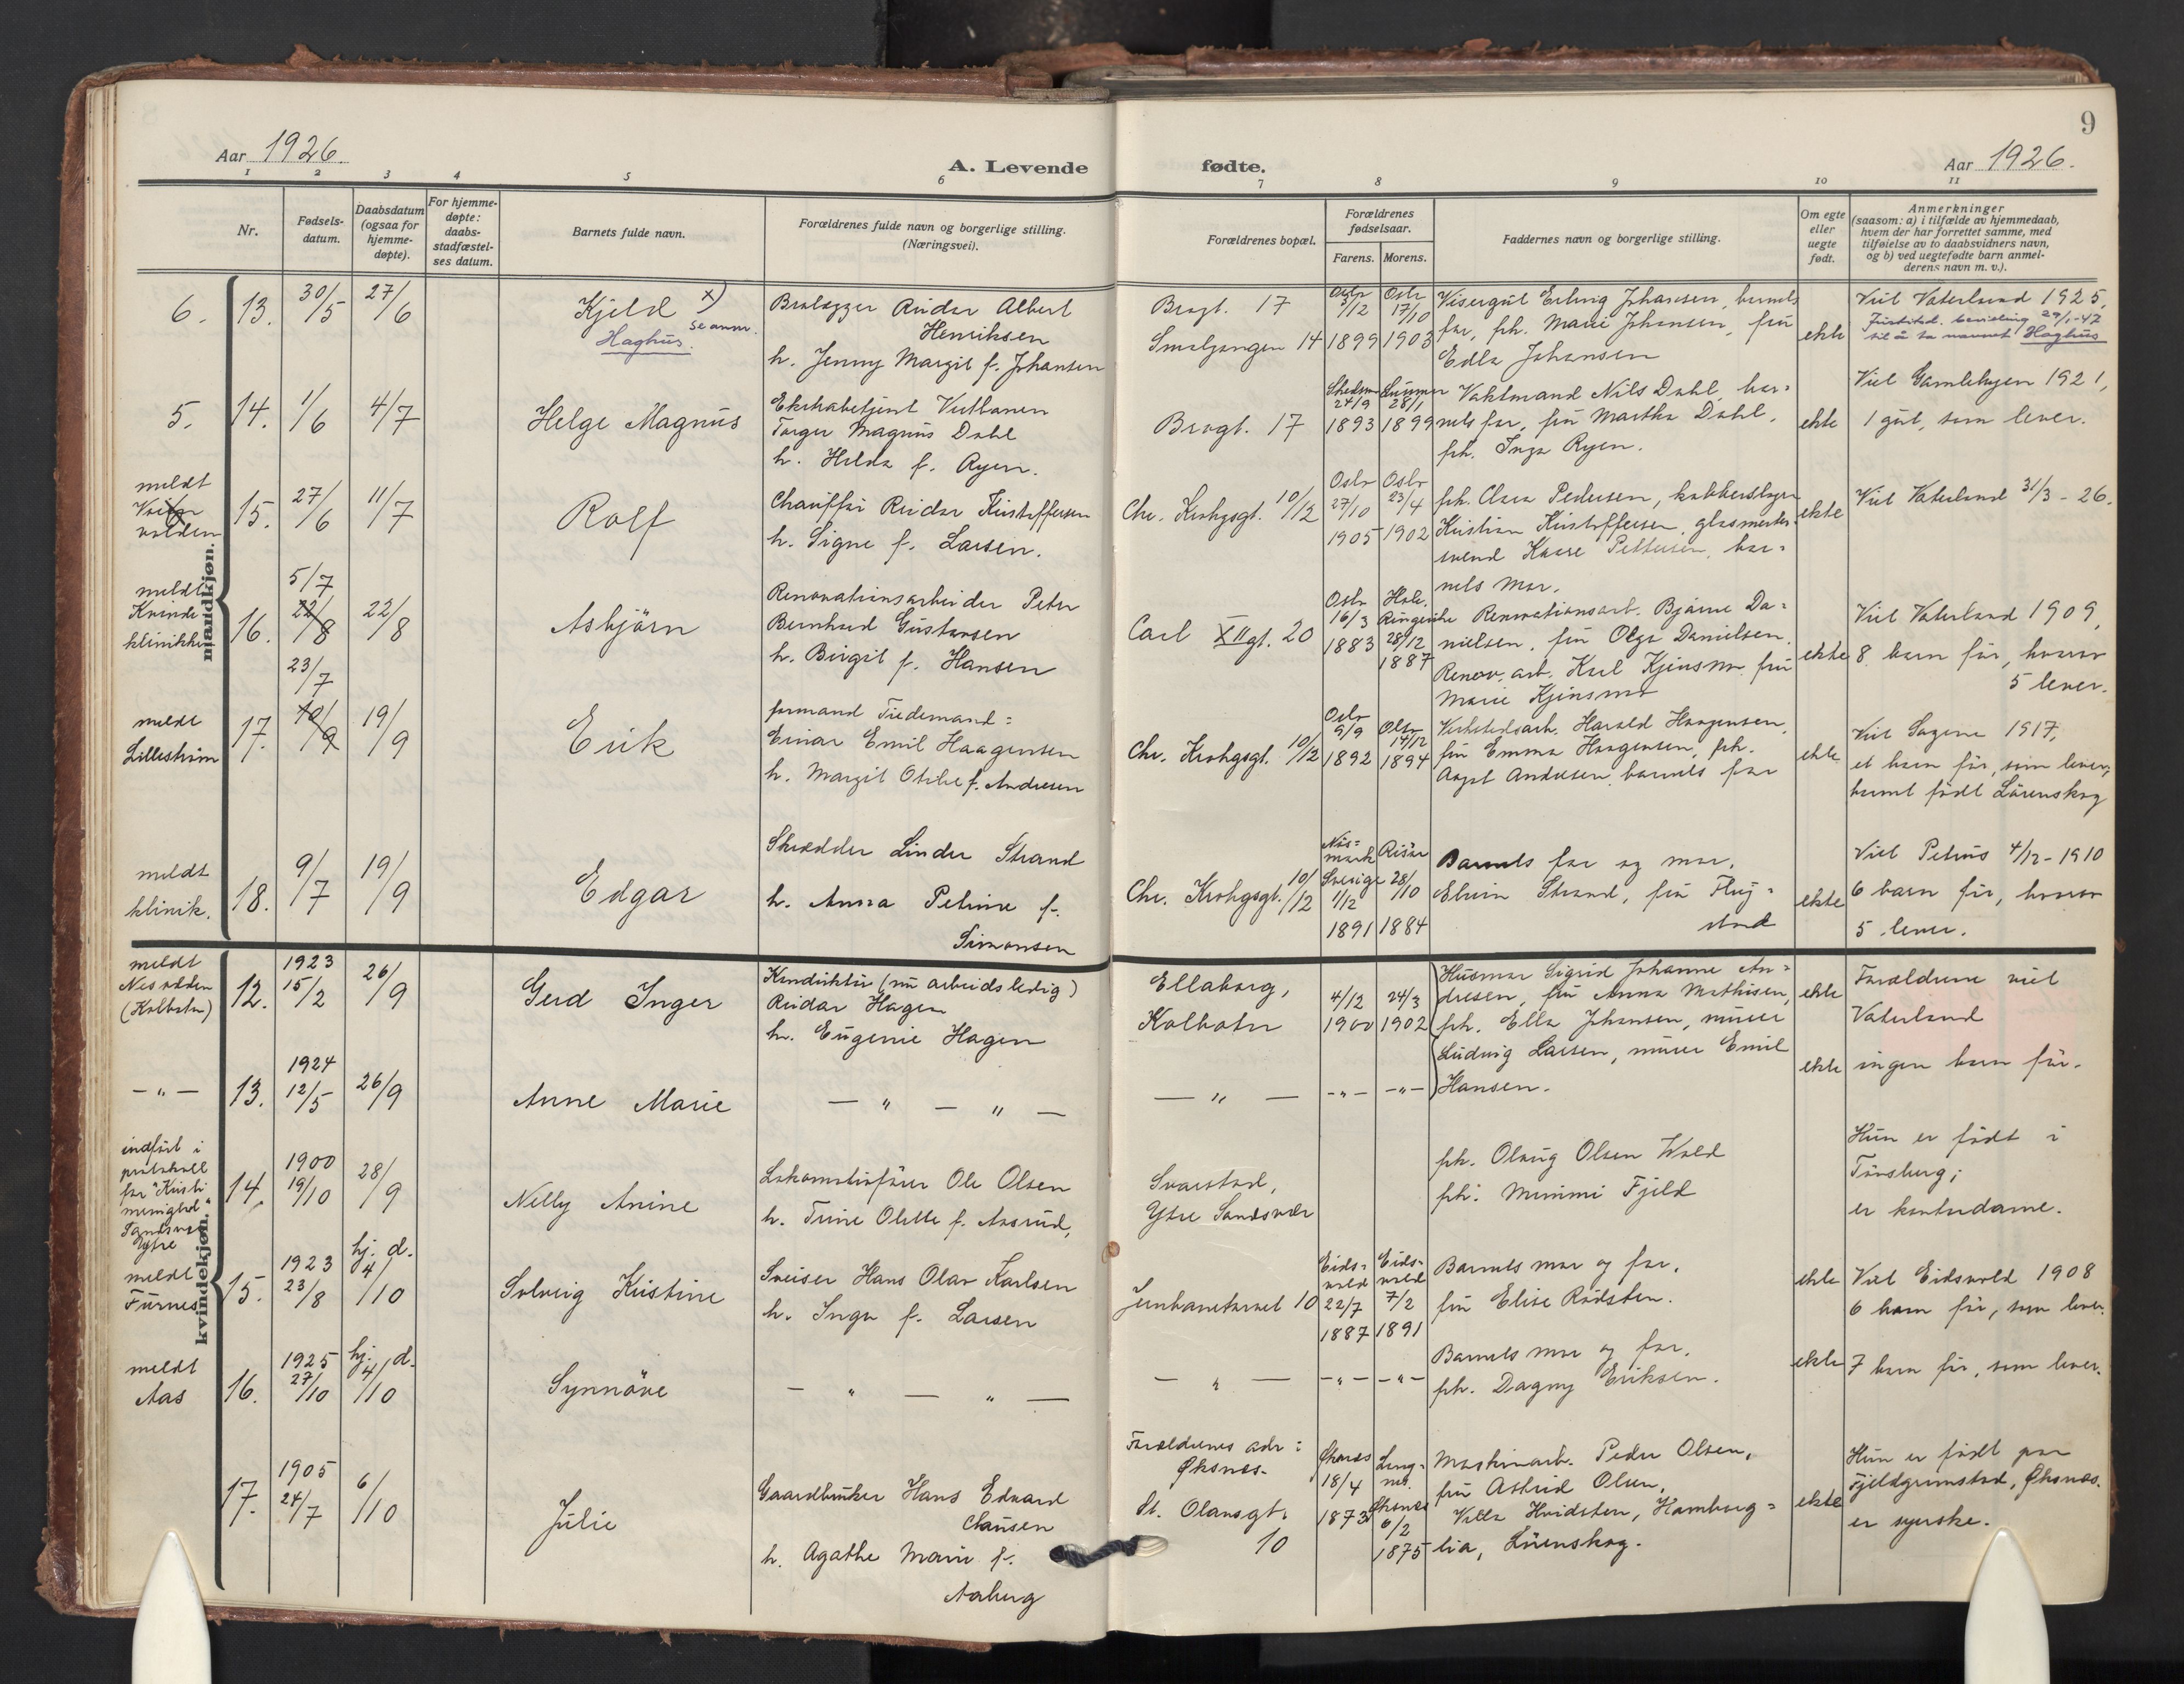 9
Aar 1926.
A. Levende
fødte.
Aar 1926.
1 2 3 4 5 6 7 8 9 10 11
Nr.
Fødsels-
datum.
Daabsdatum
(ogsaa for
hjemme-
døpte).
For hjemme-
døpte:
daabs-
stadfæstel-
ses datum.
Barnets fulde navn.
Forældrenes fulde navn og borgerlige stilling.
(Næringsvei).
Forældrenes bopæl.
Forældrenes
fødselsaar.
Farens. Morens.
Faddernes navn og borgerlige stilling.
Om egte
eller
uegte
født.
Anmerkninger
(saasom: a) i tilfælde av hjemmedaab,
hvem der har forrettet samme, med
tilføielse av to daabsvidners navn,
og b) ved uegtefødte barn anmel-
derens navn m. v.).
mandkjøn.
6. 13. 30/5 27/6
Kjeld x)
se anm.
Haghus.
Brolægger Reidar Albert
Henriksen
h. Jenny Margit f. Johansen
Brogt. 17
Smalgangen 14
Oslo 3/12 1899
Oslo 17/10 1903
Visergut Erling Johansen, barnets
far, frk. Marie Johansen, fru
Edla Johansen
ekte
Viet Vaterland 1925.
Justitsd. bevilling 29/1-47
til å ta navnet Haghus
5. 14. 1/6 4/7
Helge Magnus
Ekstrabetjent Vestbanen
Torger Magnus Dahl
h. Hilda f. Ryen.
Brogt. 17
24/9 1893
28/1 1899
Vaktmand Nils Dahl, bar-
nets far, fru Martha Dahl,
frk. Inga Ryen.
ekte
Viet Gamlebyen 1921,
1 gut, som lever.
meldt
volden
15. 27/6 11/7
Rolf
Chauffør Reidar Kristoffersen
h. Signe f. Larsen.
Chr. Krohgsgt. 10/12
Oslo 27/10 1905
Oslo 23/4 1902
frk. Clara Pedersen, kobberslager
Kristian Kristoffersen, glasmester-
svend Kaare Pettersen, bar-
nets mor.
ekte
Viet Vaterland 31/3 - 26.
meldt
Kvinde-
klinikken
16. 5/7 22/8 22/8
Asbjørn
Renovationsarbeider Peter
Bernhard Gustavsen
h. Birgit f. Hansen
Carl XIIgt. 20
Oslo 16/3 1883
Hole, Ringerike 28/12 1887
Renovationsarb. Bjarne Da-
nielsen, fru Olga Danielsen.
Renov. arb. Karl Kjensmo, fru
Marie Kjensmo
ekte
Viet Vaterland 1909,
8 barn før, hvorav
5 lever.
meldt
Lillestrøm
17. 23/7 10/9 19/9
Erik
formand Tiedemand:
Einar Emil Haagensen
h. Margit Otilie f. Andresen
Chr. Krohgsgt. 10/12
Oslo 9/9 1892
Oslo 14/12 1894
Verkstedsarb. Harald Haagensen,
fru Emma Haagensen, frk.
Aagot Andresen, barnets far
ekte
Viet Sagene 1917,
et barn før, som lever,
barnet født Lørenskog
meldt
klinik.
18. 9/7 19/9
Edgar
Skrædder Linder Strand
h. Anna Petrine f.
Simonsen
Chr. Krohgsgt. 10/12
Sverige 1/12 1891
Risør 28/10 1884
Barnets far og mor.
Elvin Strand, fru Flug-
stad
ekte
Viet Petrus 4/12 - 1910
6 barn før, hvorav
5 lever.
kvindekjøn.
meldt
Nesodden
(Kolbotn)
12. 1923 15/2 26/9
Gerd Inger
Konduktør (nu arbeidsledig)
Reidar Hagen
h. Eugenie Hagen
Ellaborg,
Kolbotn
4/12 1900
24/3 1902
Husmor Sigrid Johanne An-
dresen, fru Anna Mathisen,
frk. Ella Johansen, murer
Ludvig Larsen, murer Emil
Hansen.
ekte
Forældrene viet
Vaterland
— " —
13. 1924 12/5 26/9
Anne Marie
— " — " —
— " —
-"- -"-
ekte
ingen barn før.
indført i
protokoll
for "Kristi
menighet"
Sandsvær
Ytre
14. 1900 19/10 28/9
Nelly Anine
Lokomotivfører Ole Olsen
h. Trine Olette f. Aasrud,
Svarstad,
Ytre Sandsvær
frk. Olaug Olsen Wold
frk. Mimmi Fjeld
Hun er født i
Tønsberg;
er kontordame.
meldt
Furnes
15. 1923 23/8 hj. d. 4/10
Solveig Kristine
Sveiser Hans Olav Karlsen
h. Inga f. Larsen
Jernbanetorvet 10
Eids-
vold 22/7 1887
Eids-
vold 7/2 1891
Barnets mor og far,
fru Elise Rødsten.
ekte
Viet Eidsvold 1908
6 barn før, som lever.
meldt
Aas
16. 1925 27/10 hj. d. 4/10
Synnøve
— " — " —
— " —
-"- -"-
Barnets mor og far,
frk. Dagny Eriksen.
ekte
7 barn før, som lever.
17. 1905 24/7 6/10
Julie
Gaardbruker Hans Edvard
Clausen
h. Agathe Marie f.
Aaberg
Forældrenes adr:
Øksnes.
St. Olavsgt.
10
Øksnes 18/4 1873
Øksnes 6/2 1875
Maskinarb. Peder Olsen,
fru Astrid Olsen,
Villa Hvidsten, Hamborg-
lia, Lørenskog.
ekte
Hun er født paa
Fjeldgrimstad, Øksnes.
er syerske.